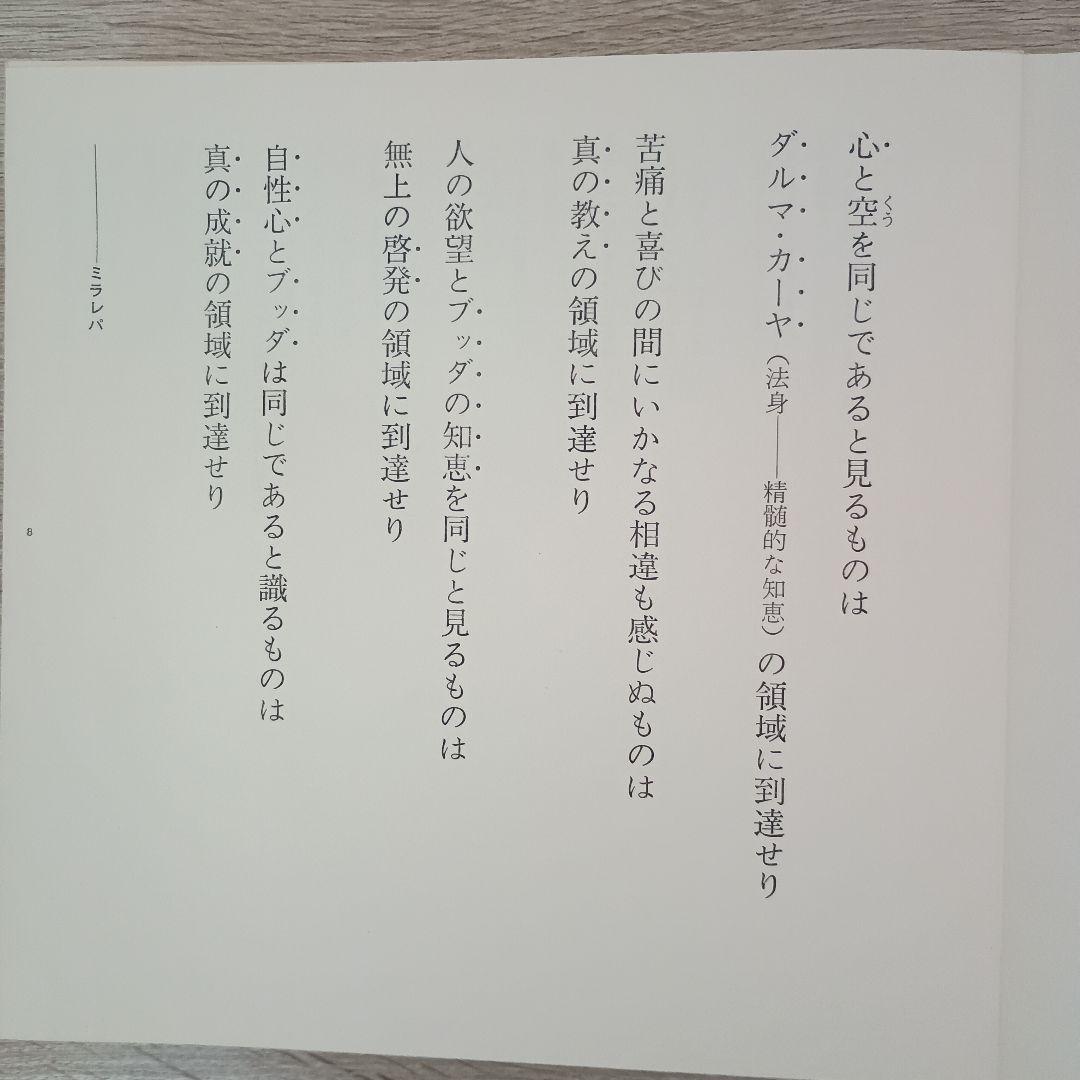 心と空を同じであると見るものは
くう
ダルマ・カーヤ(法身――精髄的な知恵)の領域に到達せり
苦痛と喜びの間にいかなる相違も感じぬものは
真の教えの領域に到達せり
人の欲望とブッダの知恵を同じと見るものは
無上の啓発の領域に到達せり
自性心とブッダは同じであると識るものは
真の成就の領域に到達せり
――――ミラレパ
8